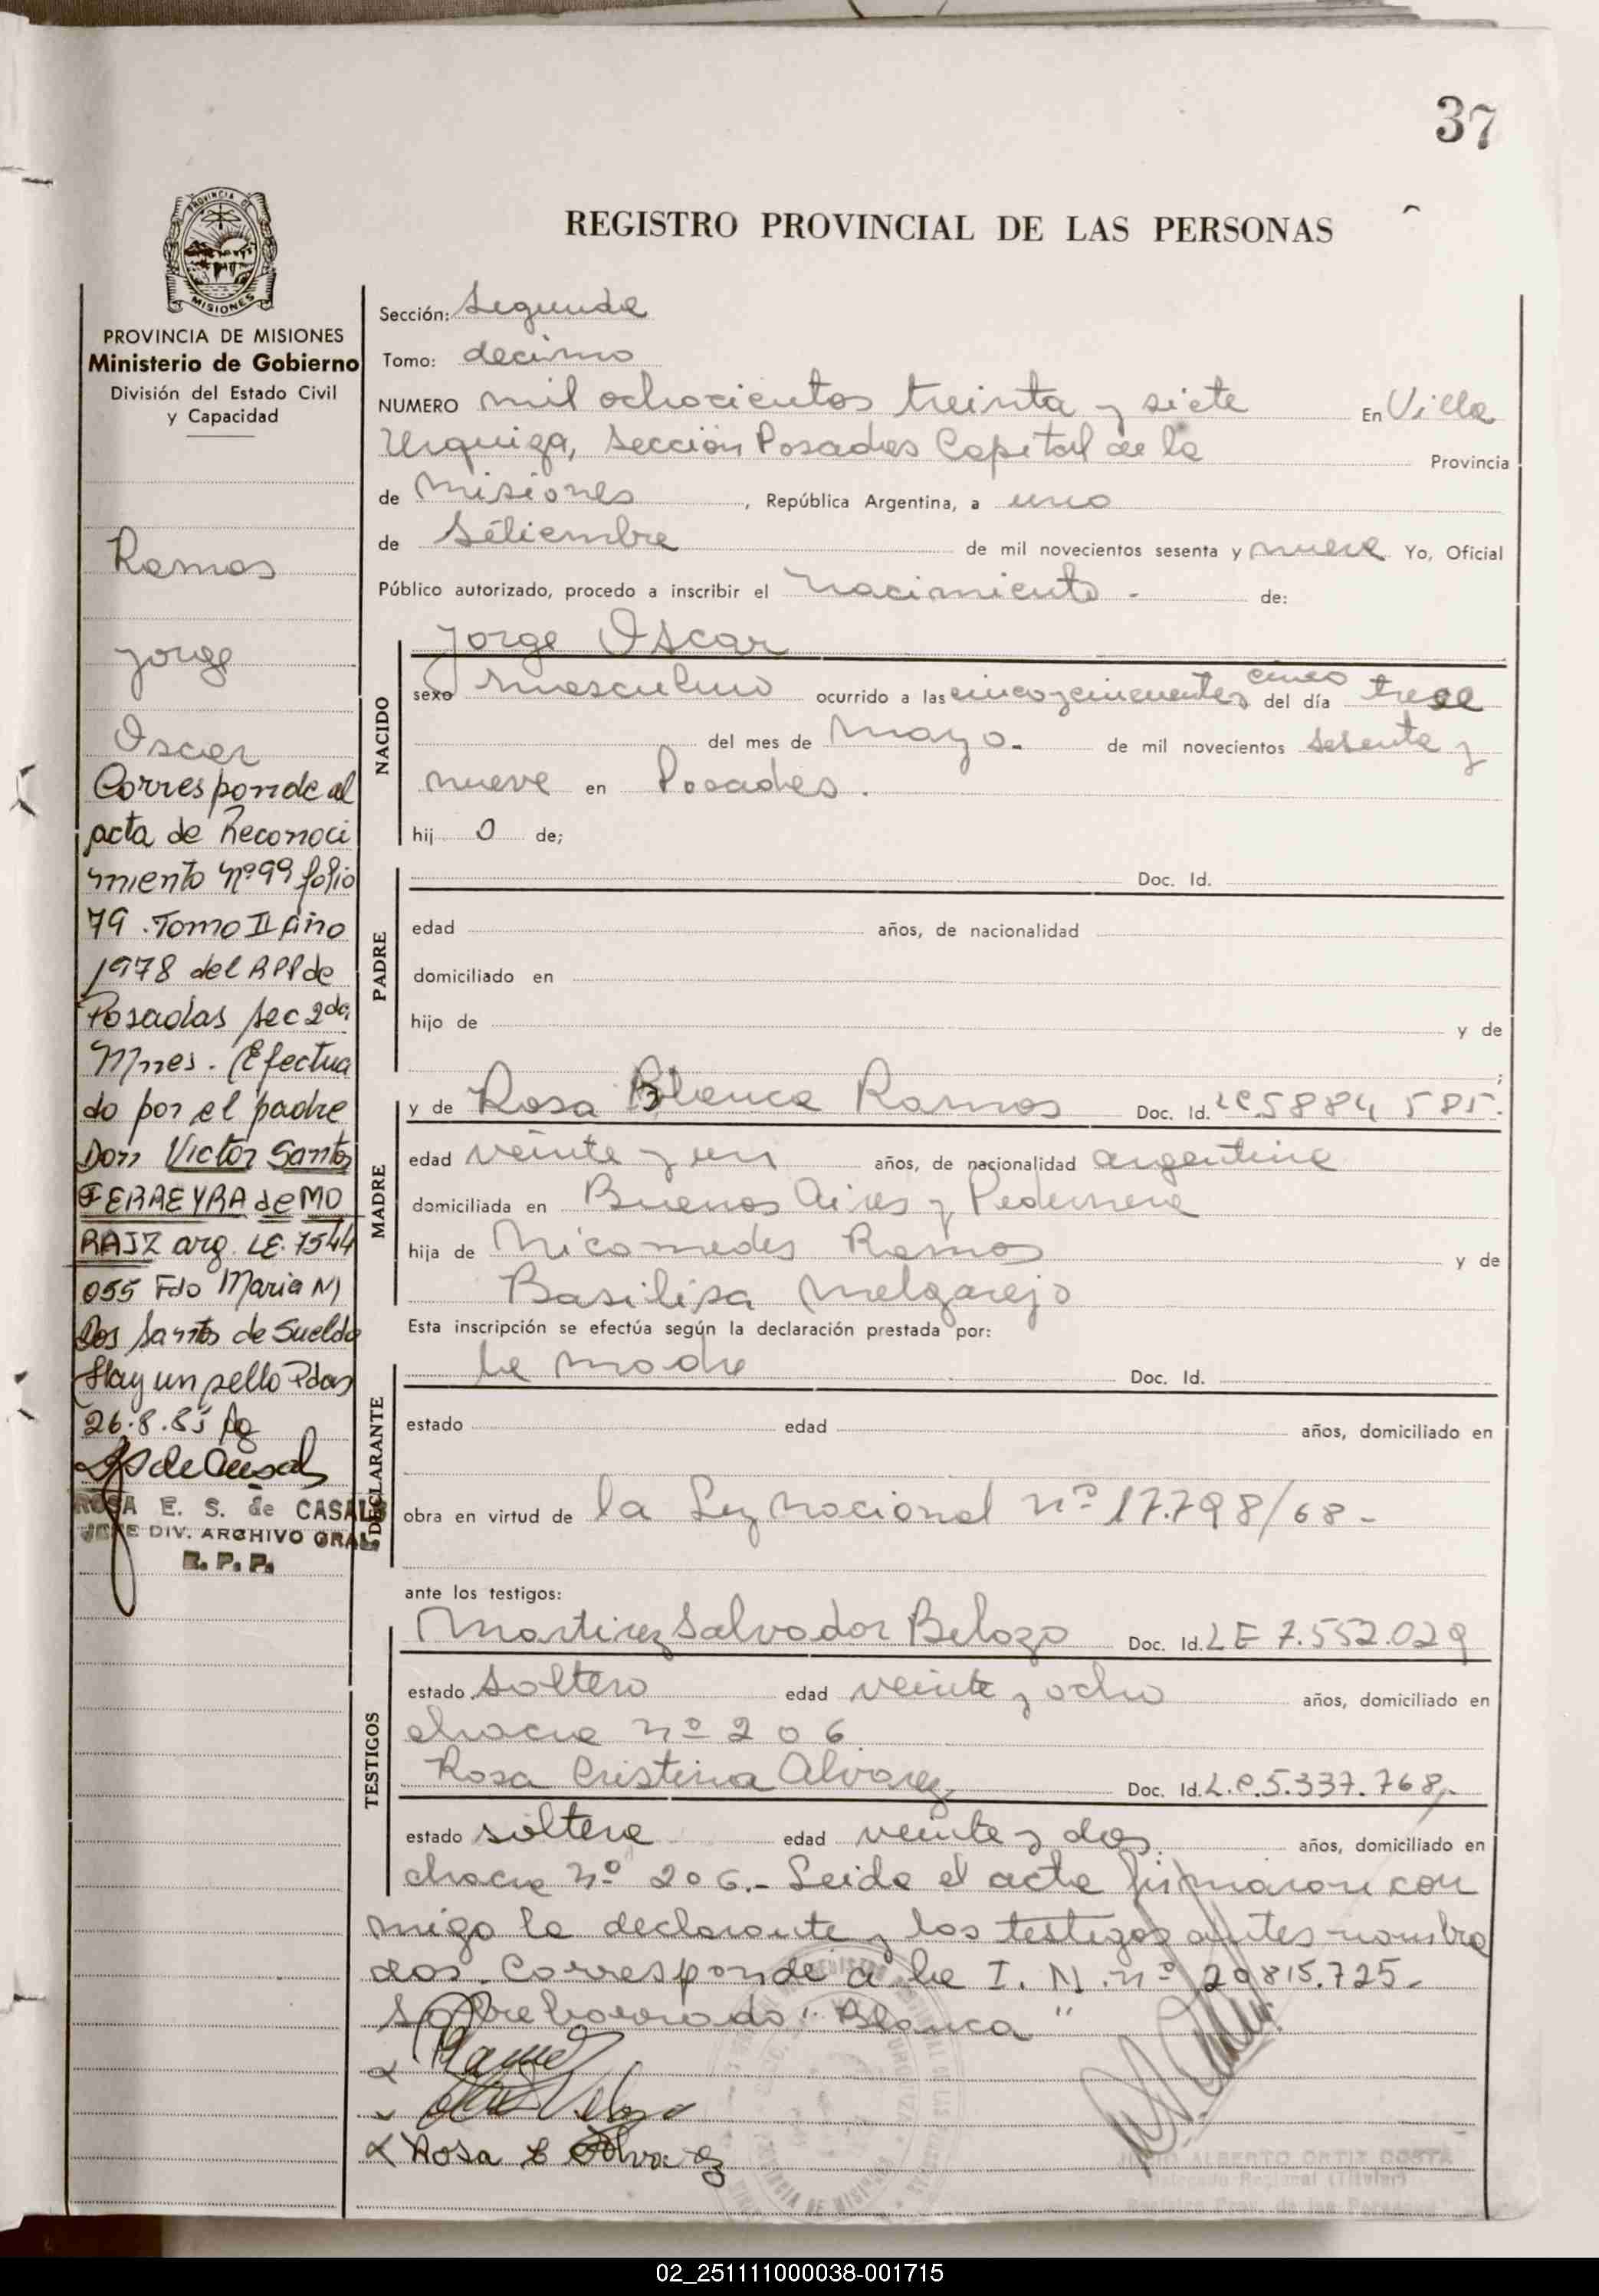 37
REGISTRO PROVINCIAL DE LAS PERSONAS
PROVINCIA DE
MISIONES
PROVINCIA DE MISIONES
Ministerio de Gobierno
División del Estado Civil
y Capacidad
Ramos
Jorge
Oscar
Corresponde al
acta de Reconoci
miento nº 99 folio
79. Tomo II Año
1978 del RPP de
Posadas Sec 2da,
Mnes. (Efectua
do por el padre
Don Victor Santos
FERREYRA de MO
RAIZ arg. LE. 7544
055 Fdo Maria M
Dos Santos de Sueldo
Hay un sello Pdas
26.8.85
ROSA E. S. de CASALS
JEFE DIV. ARCHIVO GRAL.
R. P. P.
Sección: Segunda
Tomo: decimo
NUMERO mil ochocientos treinta y siete En Villa
Urquiza, Sección Posadas Capital de la Provincia
de Misiones, República Argentina, a uno
de Setiembre de mil novecientos sesenta y nueve Yo, Oficial
Público autorizado, procedo a inscribir el nacimiento - de:
Jorge Oscar
NACIDO
cinco
sexo masculino ocurrido a las cinco y cincuenta y del día trece
del mes de mayo. de mil novecientos sesenta y
nueve en Posadas.
hij o de;
PADRE
Doc. Id.
edad años, de nacionalidad
domiciliado en
hijo de y de
;
MADRE
y de Rosa Blanca Ramos Doc. Id. LC 5884585.
edad veinte y un años, de nacionalidad argentina
domiciliada en Buenos Aires y Pedernera
hija de Nicomedes Ramos y de
Basilisa Melgarejo
Esta inscripción se efectúa según la declaración prestada por:
DECLARANTE
la madre Doc. Id.
estado edad años, domiciliado en
obra en virtud de la Ley nacional nº 17.798/68-
ante los testigos:
TESTIGOS
Martirez Salvador Belozo Doc. Id. LE 7.552.029
estado soltero edad veinte y ocho años, domiciliado en
chacra nº 206
Rosa Cristina Alvarez Doc. Id. L.C. 5.337.768,-
estado soltera edad veinte y dos años, domiciliado en
chacra nº 206.- Leida el acta firmaron con
migo la declarante y los testigos antes nombra
dos. Corresponde a la I. N. nº 20815.725.
Sobreborrado "Blanca"
Rosa C Alvarez
ALBERTO ORTIZ COSTA
Delegado Regional (Titular)
Registro Prov. de las Personas
02_251111000038-001715